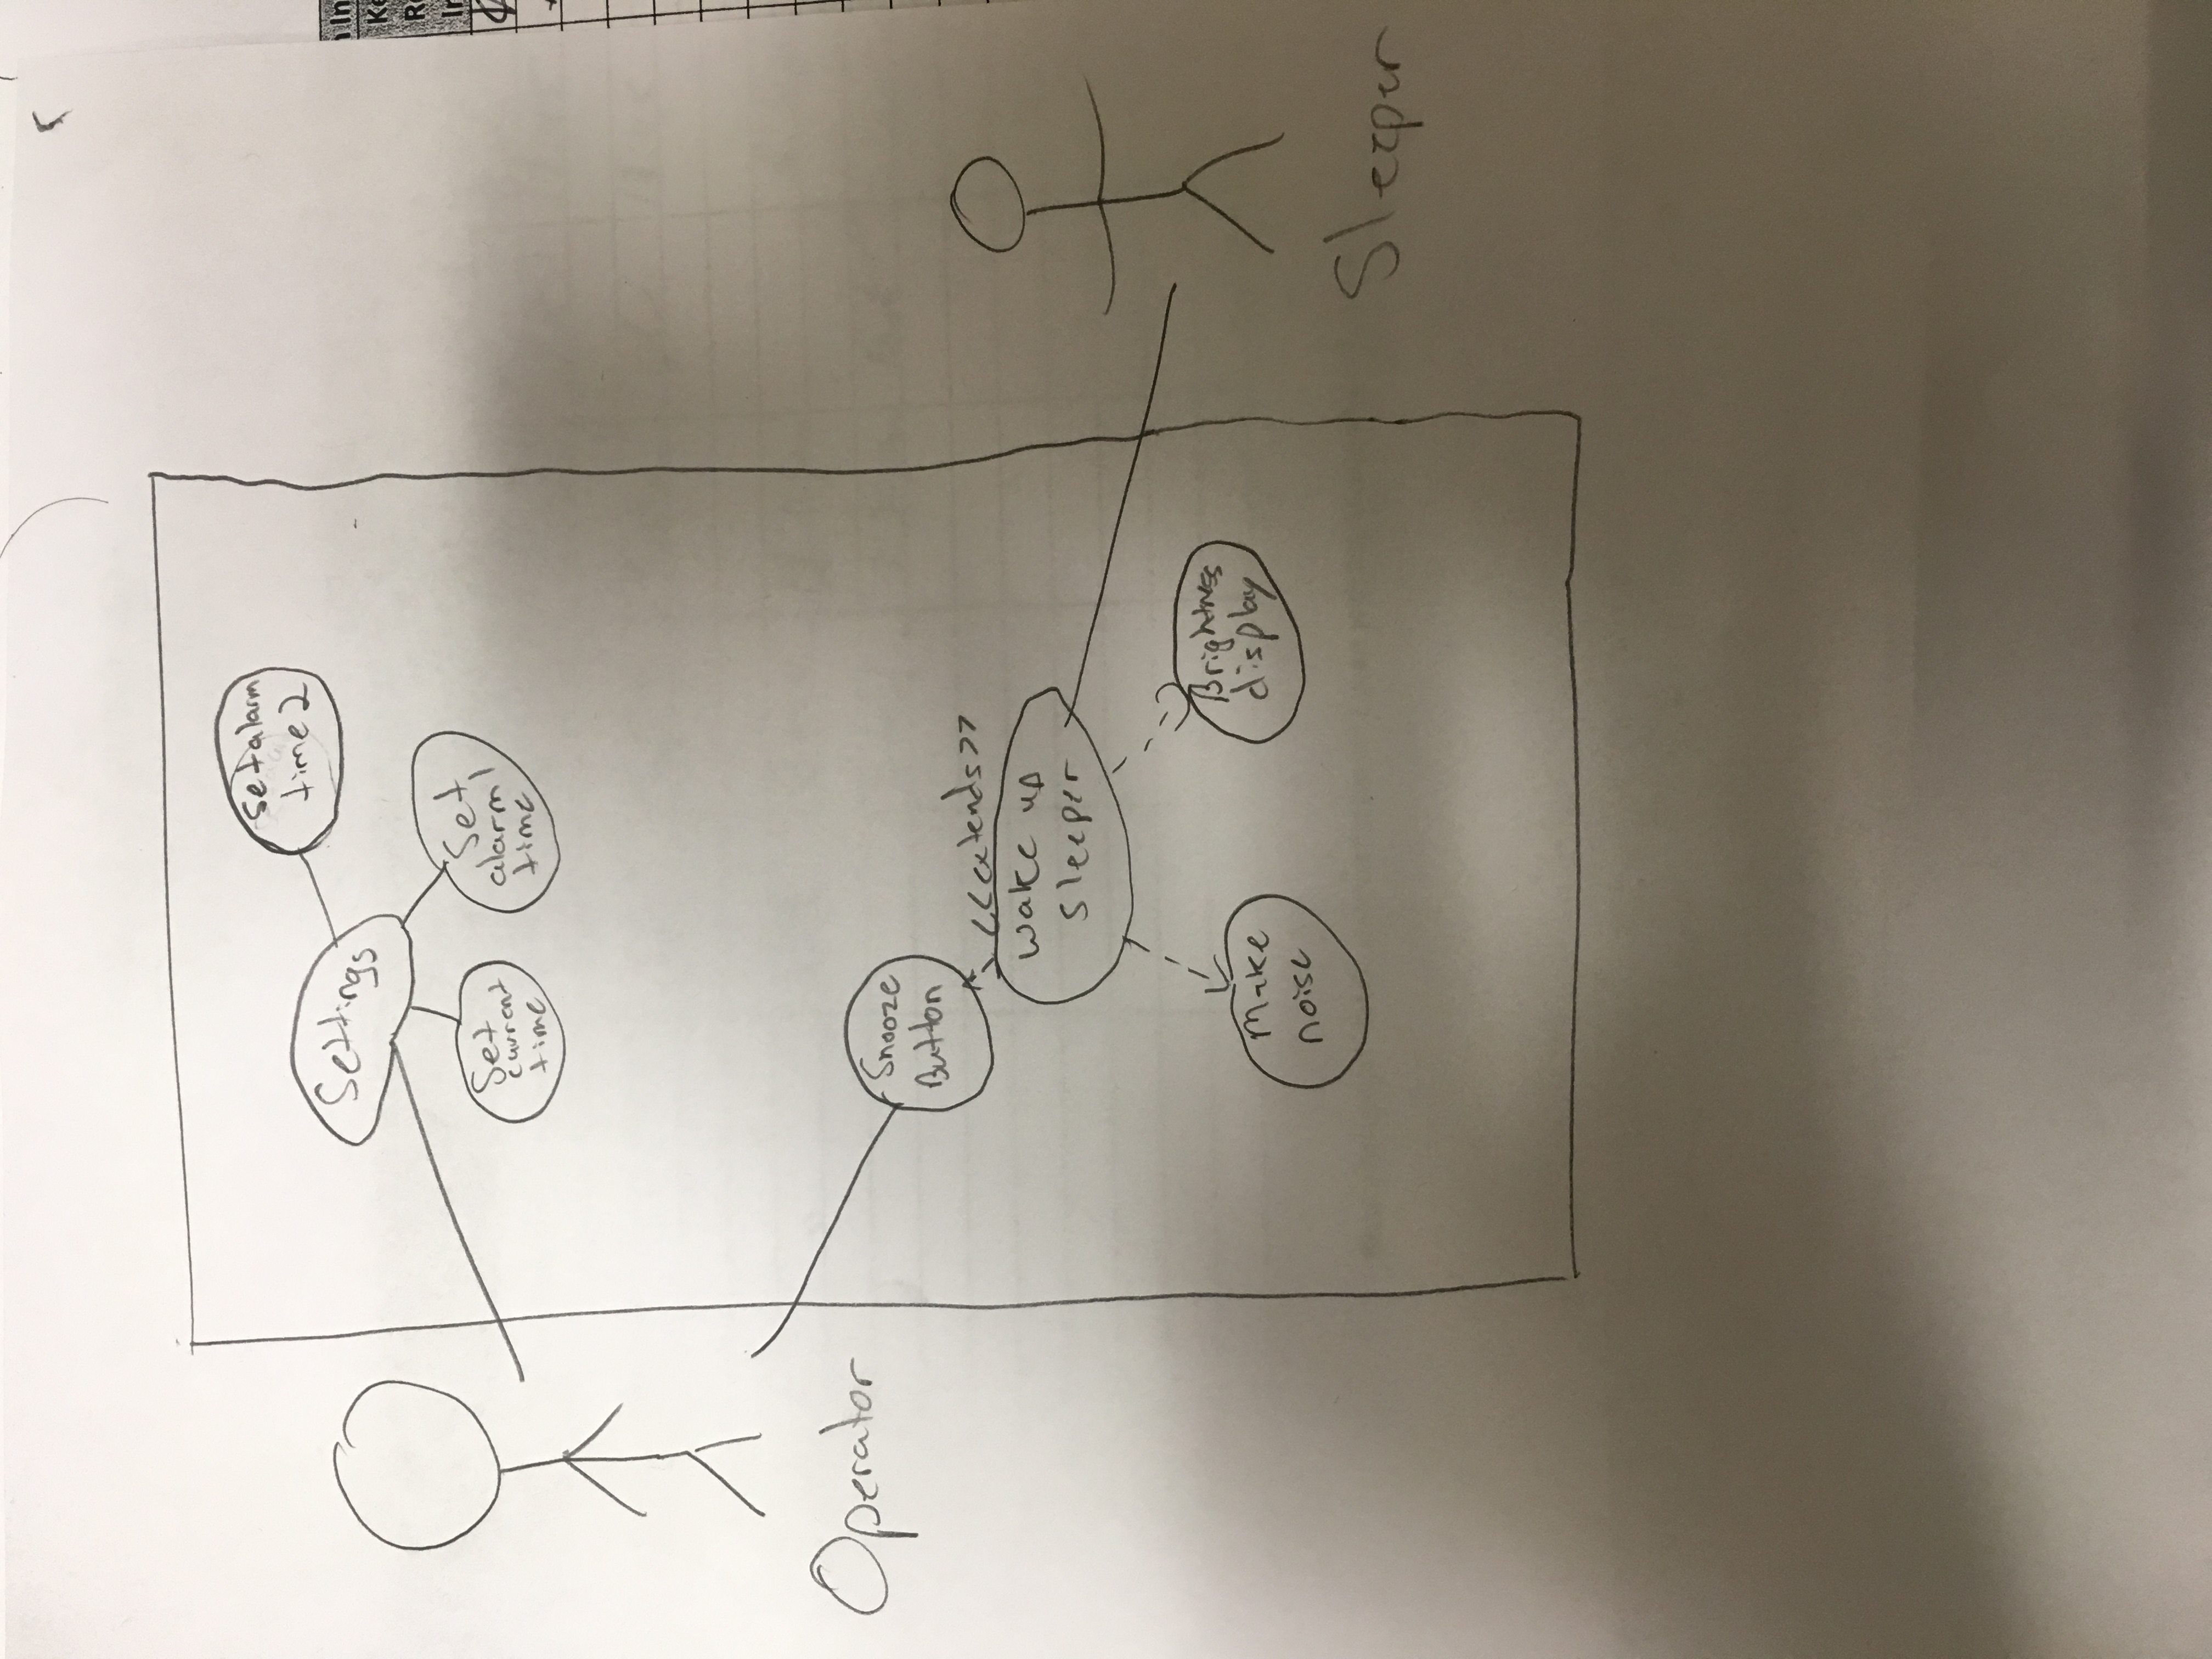 Set alarm
time 2
Settings
Set
current
time
Set
alarm 1
time
Operator
Snooze
Button
<<extends>>
Wake up
Sleeper
Make
noise
Brightness
display
Sleeper
In